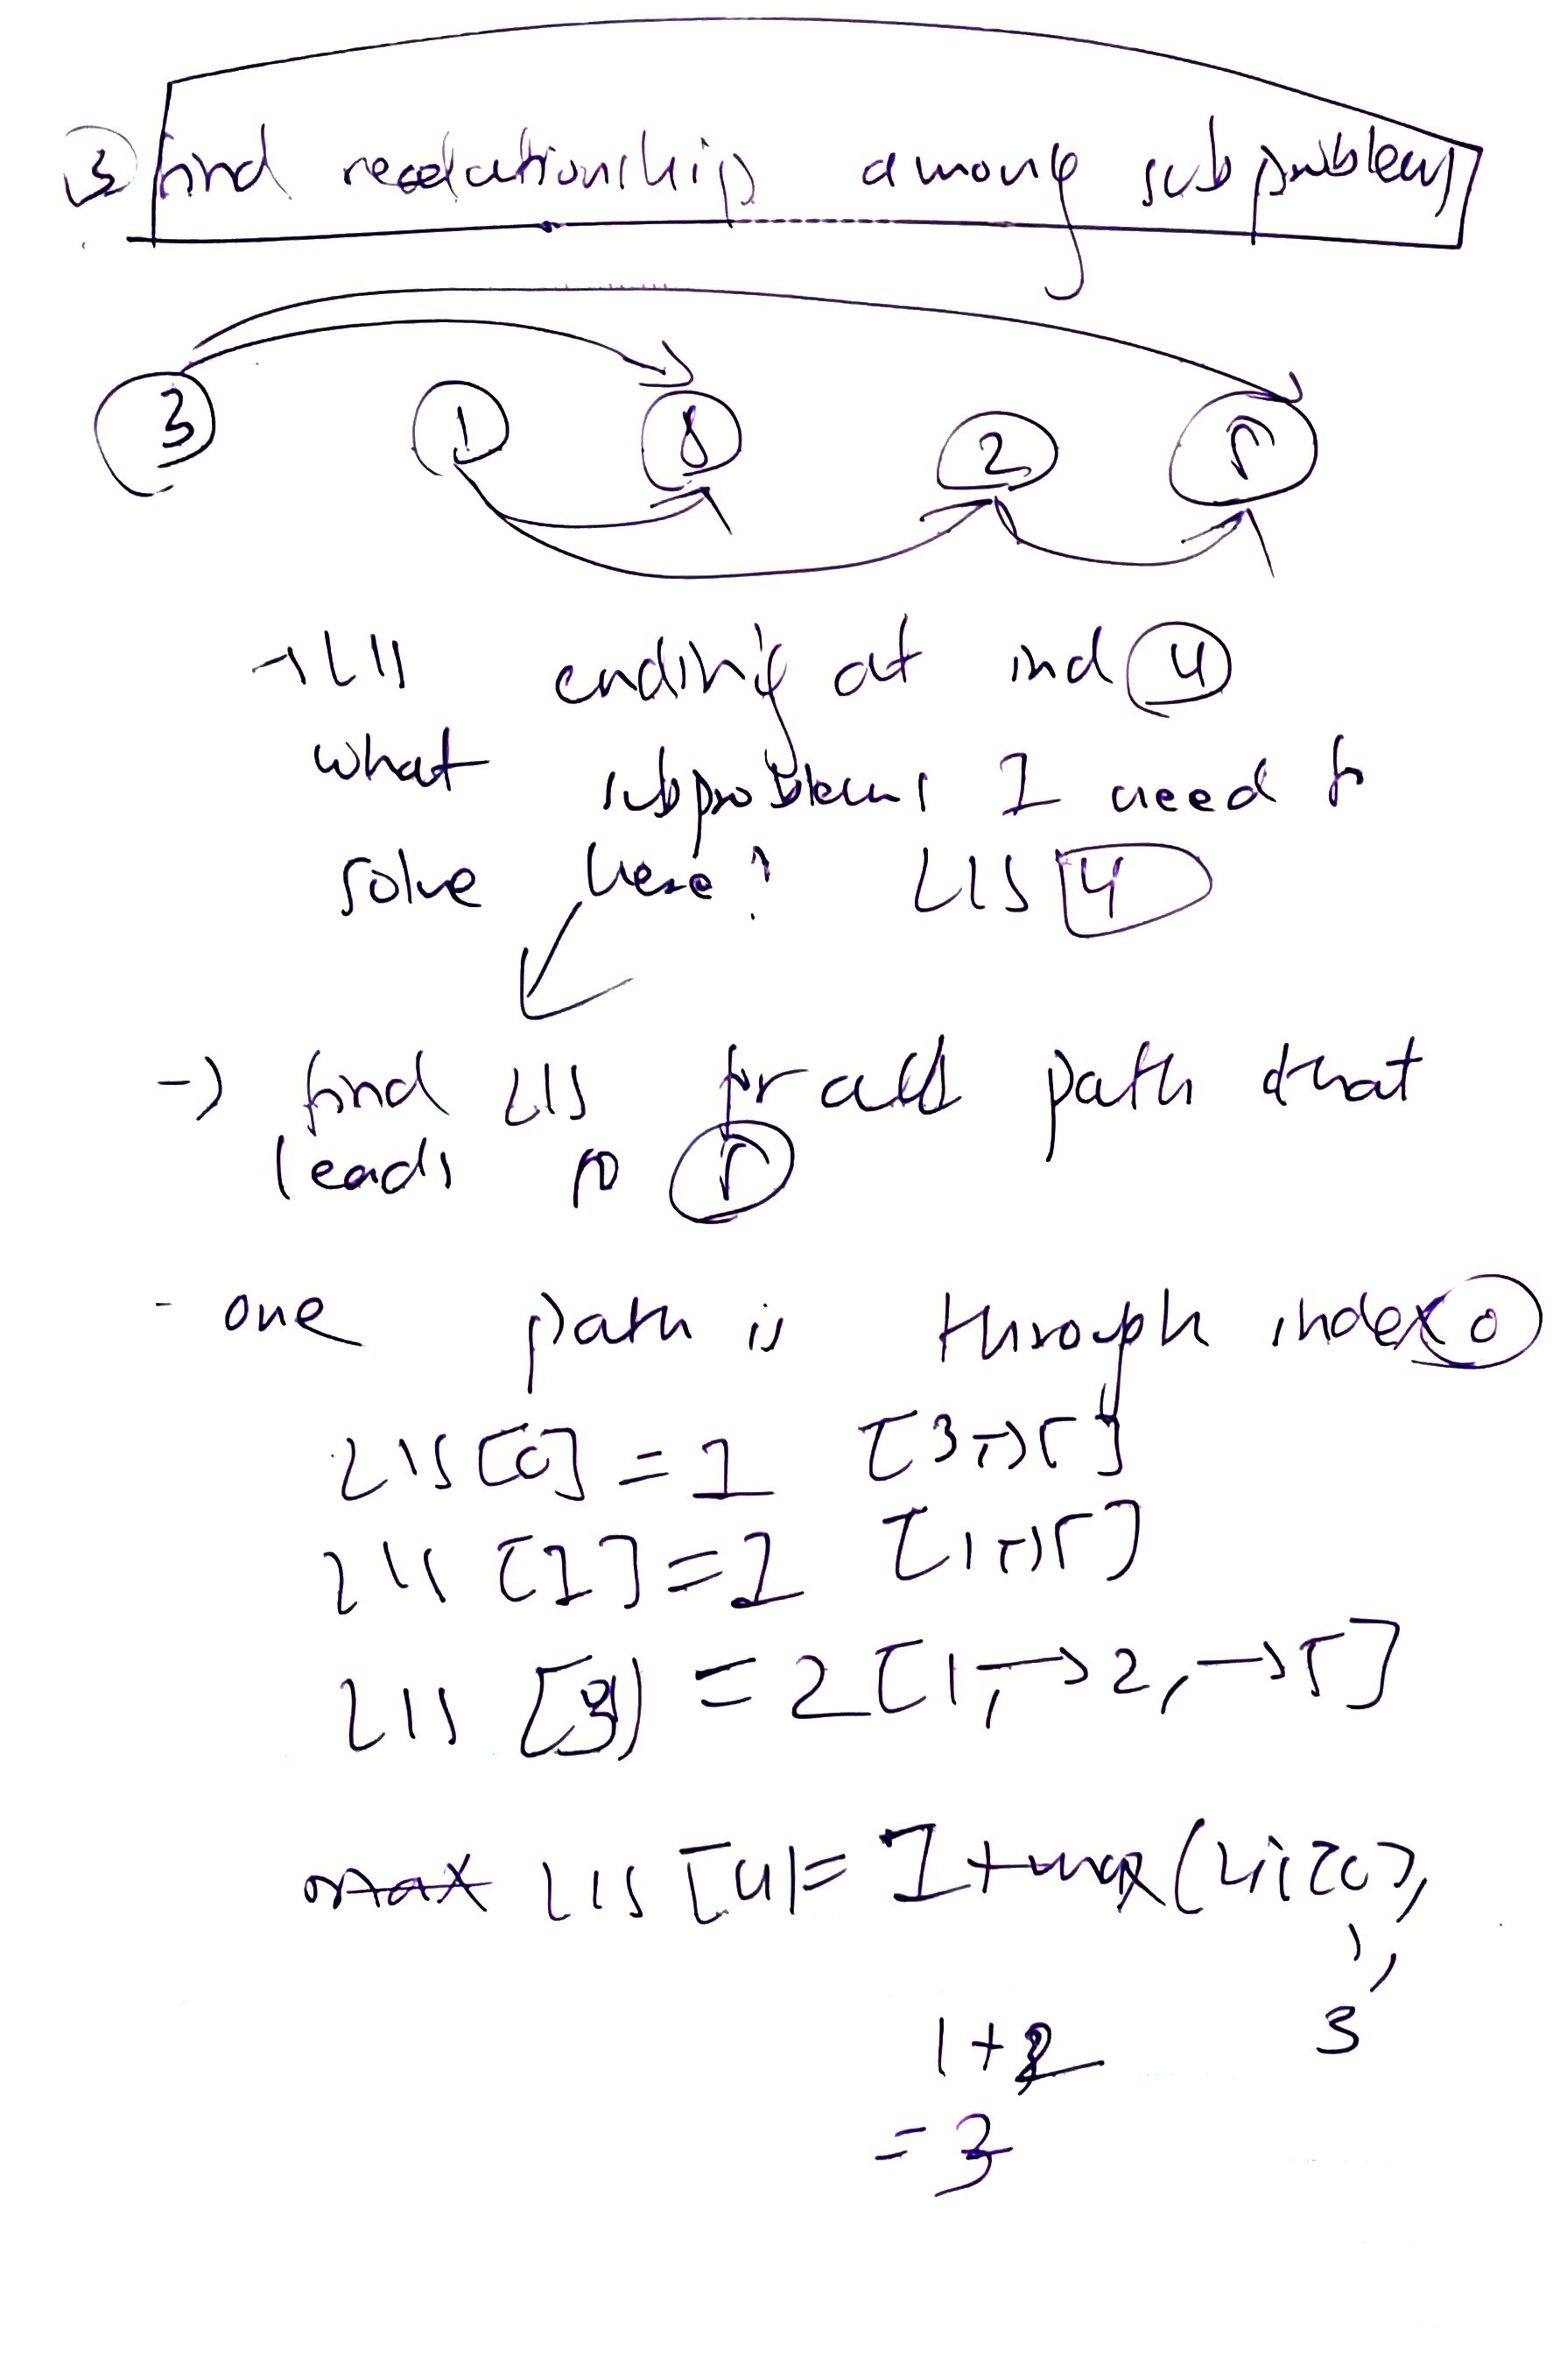 ③ find relationship among subproblem
3 1 8 2 5
→ LIS ending at ind 4
what subproblems I need to
solve here? LIS 4
→ find LIS for all path that
leads to 5
- one path is through index 0
LIS [0] = 1 [3→5]
LIS [1] = 1 [1→5]
LIS [3] = 2 [1, → 2, → 5]
max LIS [4] = 1 + max (LIS[0],
1,
3
1 + 2
= 3